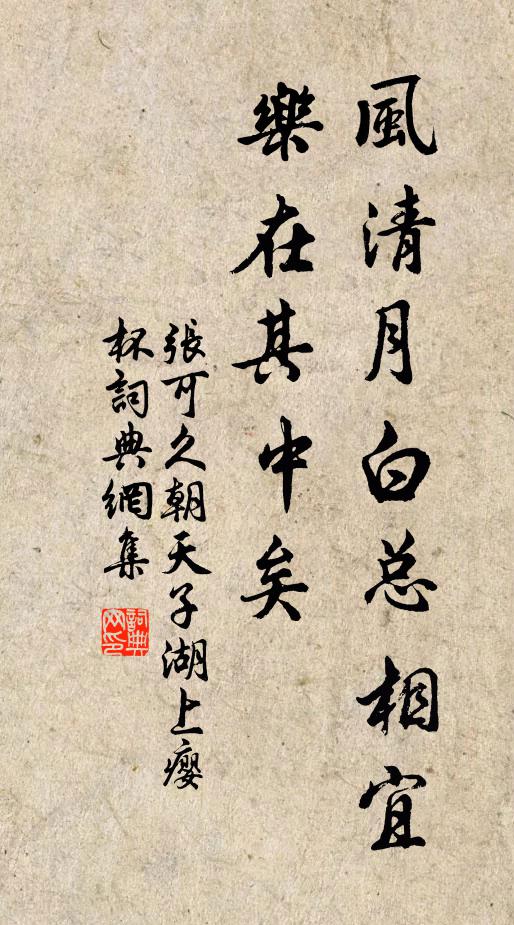 風清月白总相宜
樂在其中矣
張可久朝天子湖上瘿
杯詞典網集
詞典网印